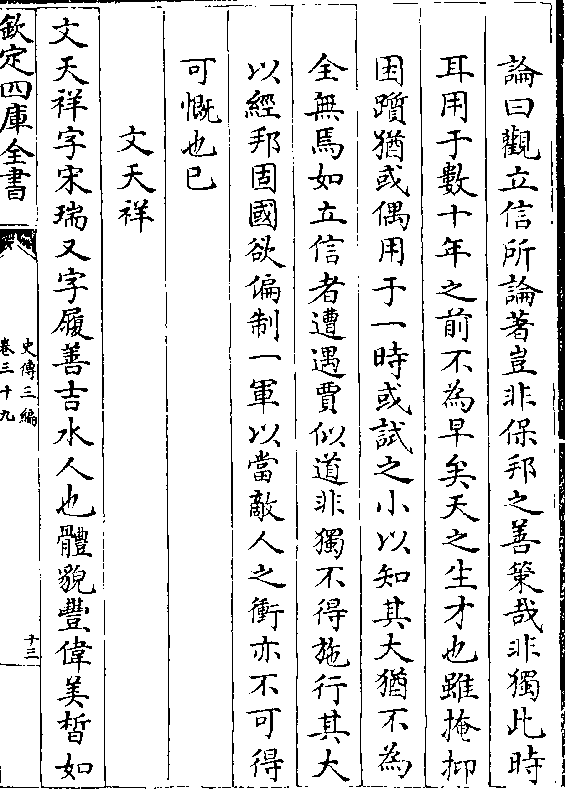 論曰觀立信所論著豈非保邦之善策哉非獨此時
耳用于數十年之前不為早矣天之生才也雖掩抑
困躓猶或偶用于一時或試之小以知其大猶不為
全無焉如立信者遭遇賈似道非獨不得施行其大
以經邦固國欲偏制一軍以當敵人之衝亦不可得
可慨也已
文天祥
文天祥字宋瑞又字履善吉水人也體貌豐偉美皙如
欽定四庫全書
史傳三編
卷三十九
十三